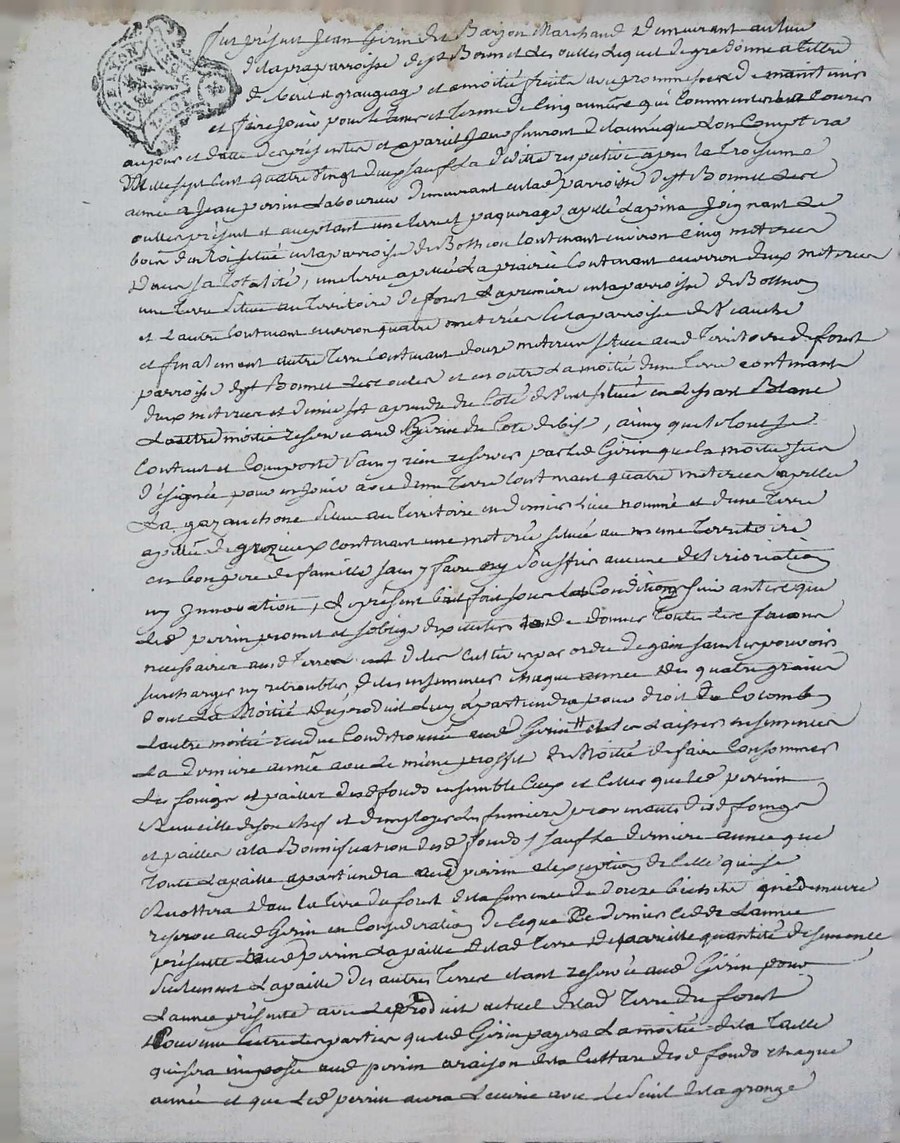 fut présent Jean Girin dit Barjon Marchand Demeurant au lieu
de la praparroisse de st Bonnet Les oulles Lequel de gré donne a titre
de bail et grangeage et a moitié fruits avec promesse de maintenir
et faire jouir pour le tems et terme de Cinq années qui Commenceront a Courir
aujour et datte des présentes et a pareil Jour finiront de l'année que L'on Comptera
Mille sept Cent quatre Vingt deux sauf La ditte respective apres la Troisieme
année a Jean perrin Laboureur demeurant en lad parroisse de st Bonnet Les
oulles présent et acceptant une terre et paquerage apellé Lapina Joignant Le
bois du Roi située en la parroisse de Botheon Contenant environ Cinq meterées
Dans sa totalité, une terre apellée La prairie Contenant environ deux meterées
une Terre située au Territoire de forest La premiere en la parroisse de Botheon
et L'autre Contenant environ quatre meterées en la parroisse de Veauche
et finalement autre Terre Contenant douze meterées située aud Territoire de forest
parroisse de st Bonnet Les oules et en outre La moitié d'une Terre contenant
deux meterées et demie à prendre du Coté de Vent située en Lessart Blanc
Lautre moitié reservée aud Girin du Coté de bise, ainsy que le tout se
Contient et Comporte sans y rien reserver par led Girin que la moitié sus
désignée pour en jouir avec d'une Terre Contenant quatre meterées apellée
La gazanchone située au Territoire en dernier lieu nommé et d'une Terre
apellée de grozieux contenant une meterée située au meme Territoire
en bon pere de famille sans y faire ny souffrir aucune deterioriation
ny Innovation, Le présent bail fait sous les Conditions suivantes que
Led perrin promet et soblige d'executer de Donner toutes Les façons
necessaires aud Terres et de les Cultiver par ordre de gain sans les pouvoir
surcharger ny retroubler, de les ensemencer chaque année des quatre grains
dont La Moitié du produit Luy apartiendra pour droit de Colomb
Lautre moitié rendue Conditionnée aud Girin et de Laisser ensemencer
La derniere année avec Le même prossit de Moitié de faire Consommer
Les foinge et pailles desd fonds ensemble Ceux et Celles que led perrin
Recueille de son chef et d'employer Les fumiers provenants desd foinge
et pailles a la Bonnification desd fonds, sauf La derniere année que
Toute La paille apartiendra aud perrin a l'exception de Celle qui se
Recoltera dans la Terre du forest de la semence de douze bichets qui demeure
reservée aud Girin en Consideration de Ce que Ce dernier Cede L'année
présente aud perrin La paille de lad Terre de pareille quantité de semence
seulement La paille des autres Terres étant reservée aud Girin pour
L'année présente avec Le produit actuel de lad Terre du forest
Convenu Entre Les parties que led Girin payera La moitié de la Taille
qui sera imposée aud perrin a raison de la Culture desd fonds chaque
année et que Led perrin aura L'ecurie avec Le Seuil de la grange